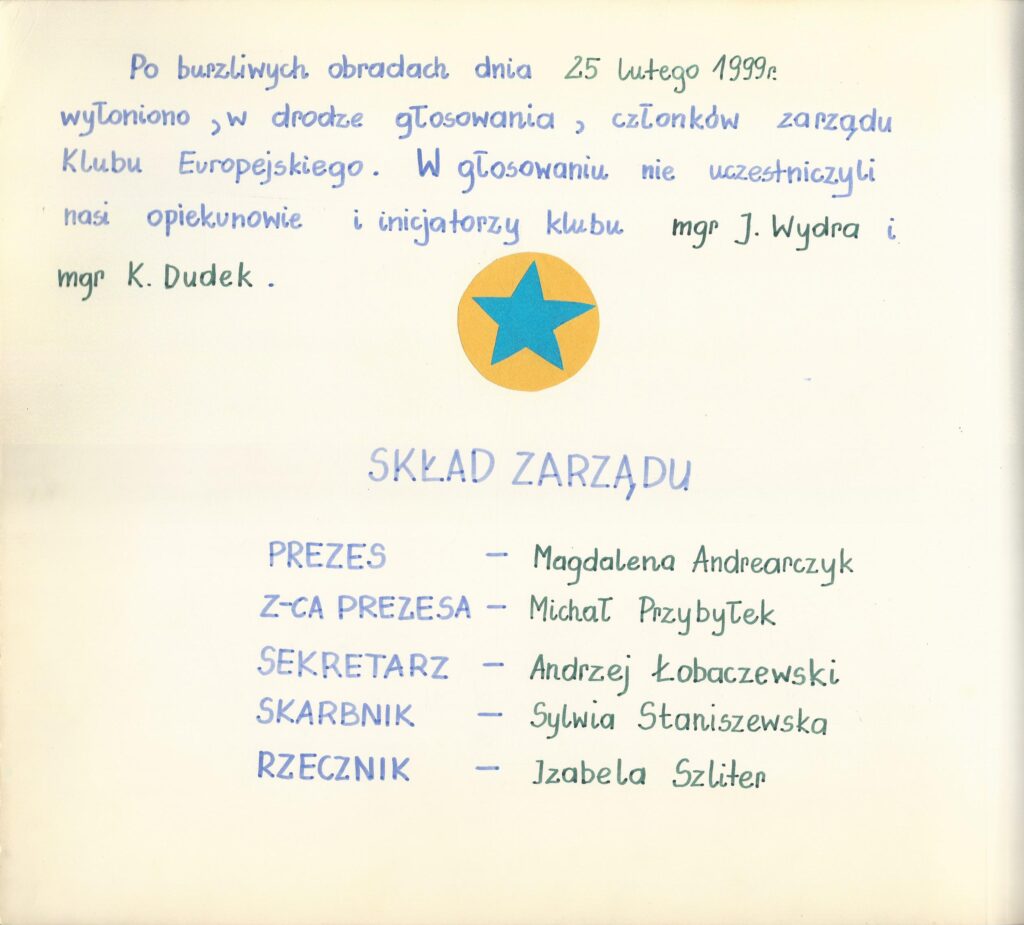 Po burzliwych obradach dnia 25 lutego 1999r.
wyłoniono , w drodze głosowania , członków zarządu
Klubu Europejskiego. W głosowaniu nie uczestniczyli
nasi opiekunowie i inicjatorzy klubu mgr J. Wydra i
mgr K. Dudek .
SKŁAD ZARZĄDU
PREZES – Magdalena Andrearczyk
Z-CA PREZESA – Michał Przybyłek
SEKRETARZ – Andrzej Łobaczewski
SKARBNIK – Sylwia Staniszewska
RZECZNIK – Izabela Szliter